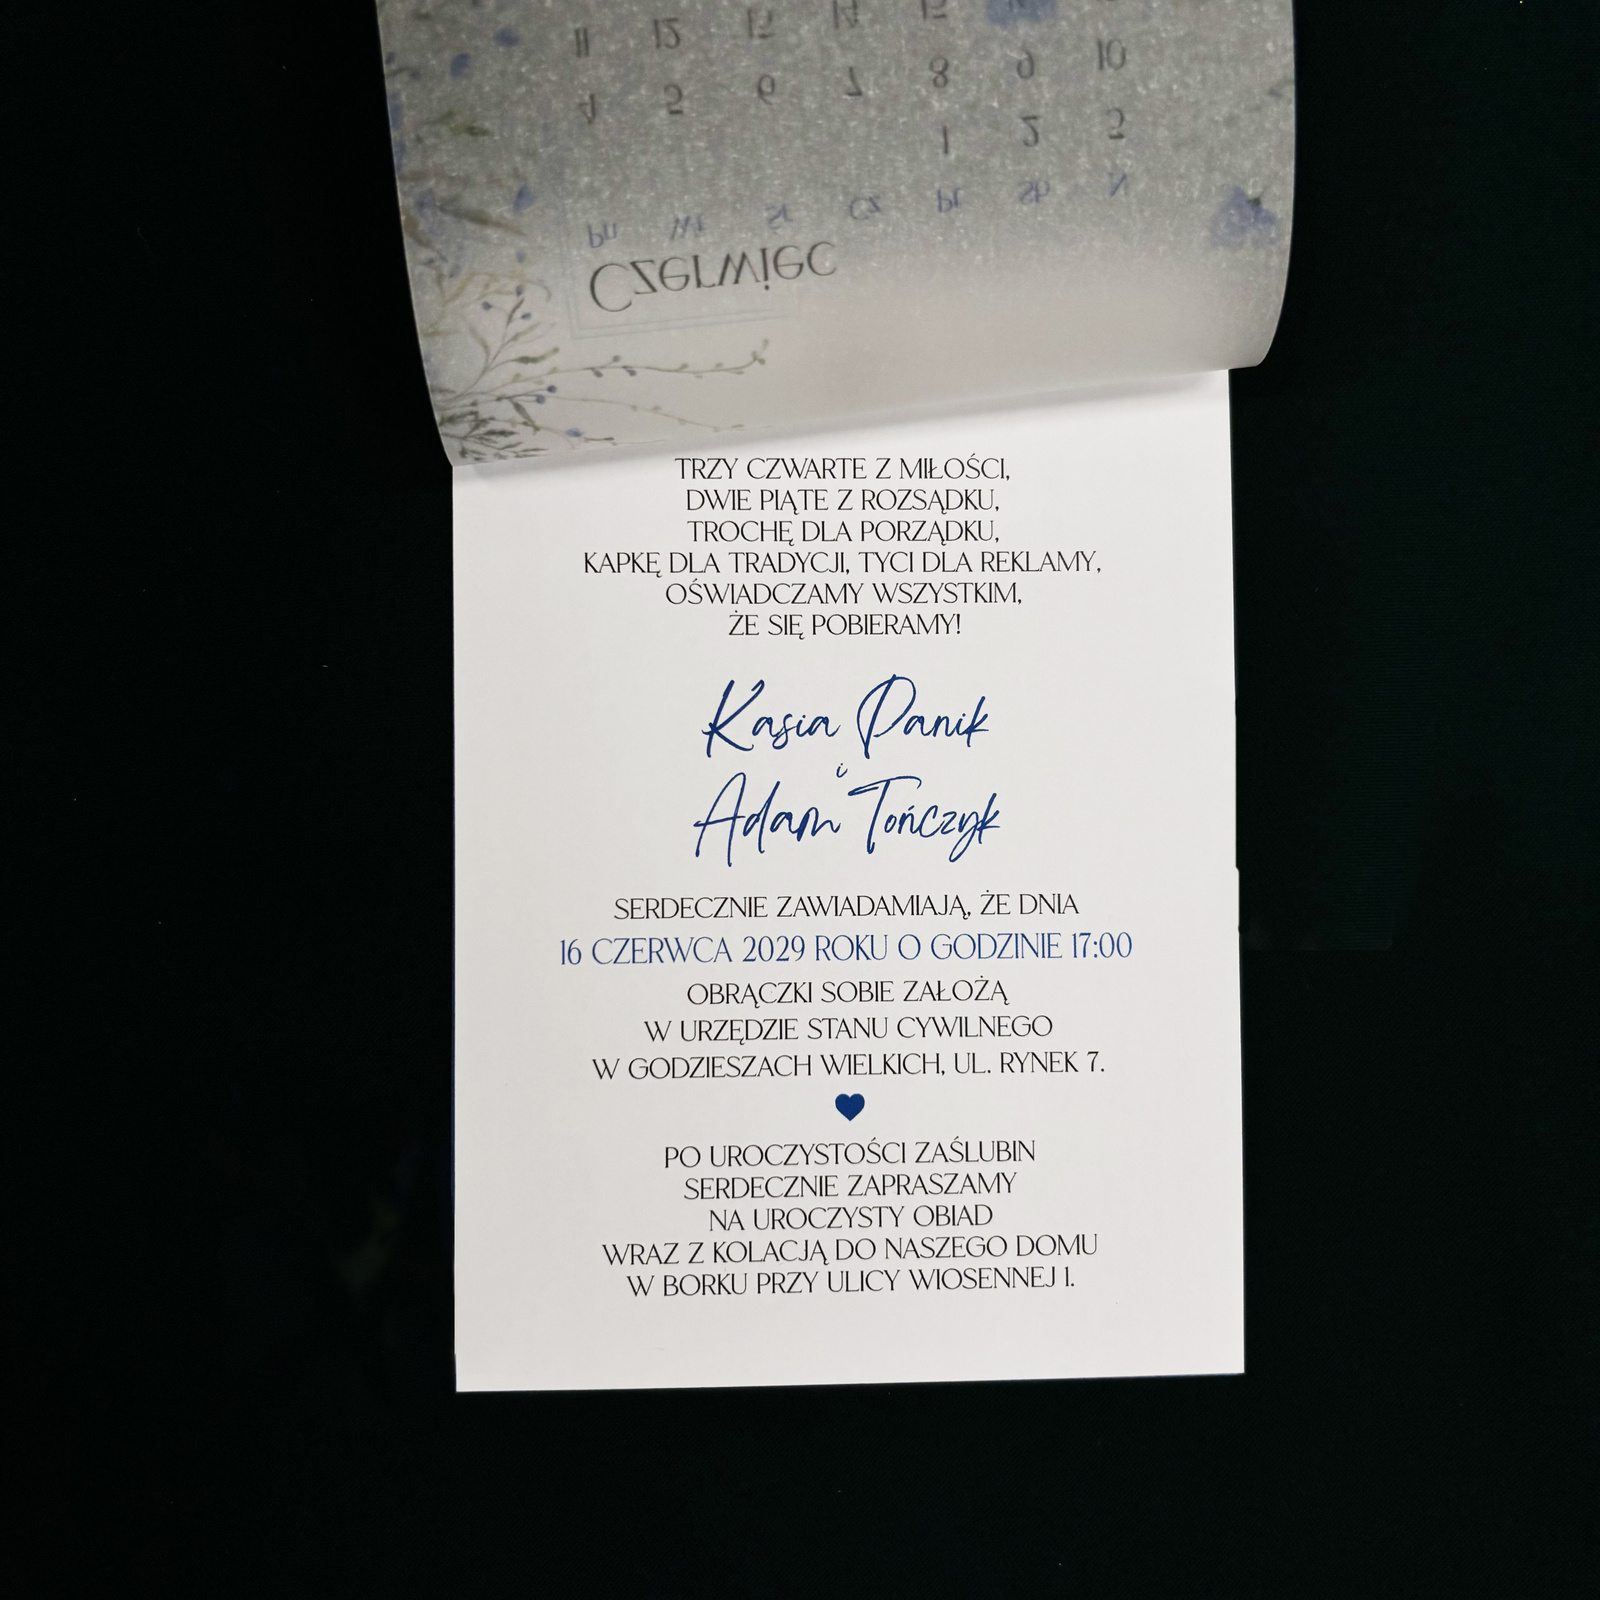 Czerwiec
Pn Wt Śr Cz Pt Sb N
1 2 3
4 5 6 7 8 9 10
11 12 13 14 15 16
TRZY CZWARTE Z MIŁOŚCI,
DWIE PIĄTE Z ROZSĄDKU,
TROCHĘ DLA PORZĄDKU,
KAPKĘ DLA TRADYCJI, TYCI DLA REKLAMY,
OŚWIADCZAMY WSZYSTKIM,
ŻE SIĘ POBIERAMY!
Kasia Panik
i
Adam Tończyk
SERDECZNIE ZAWIADAMIAJĄ, ŻE DNIA
16 CZERWCA 2029 ROKU O GODZINIE 17:00
OBRĄCZKI SOBIE ZAŁOŻĄ
W URZĘDZIE STANU CYWILNEGO
W GODZIESZACH WIELKICH, UL. RYNEK 7.
PO UROCZYSTOŚCI ZAŚLUBIN
SERDECZNIE ZAPRASZAMY
NA UROCZYSTY OBIAD
WRAZ Z KOLACJĄ DO NASZEGO DOMU
W BORKU PRZY ULICY WIOSENNEJ 1.